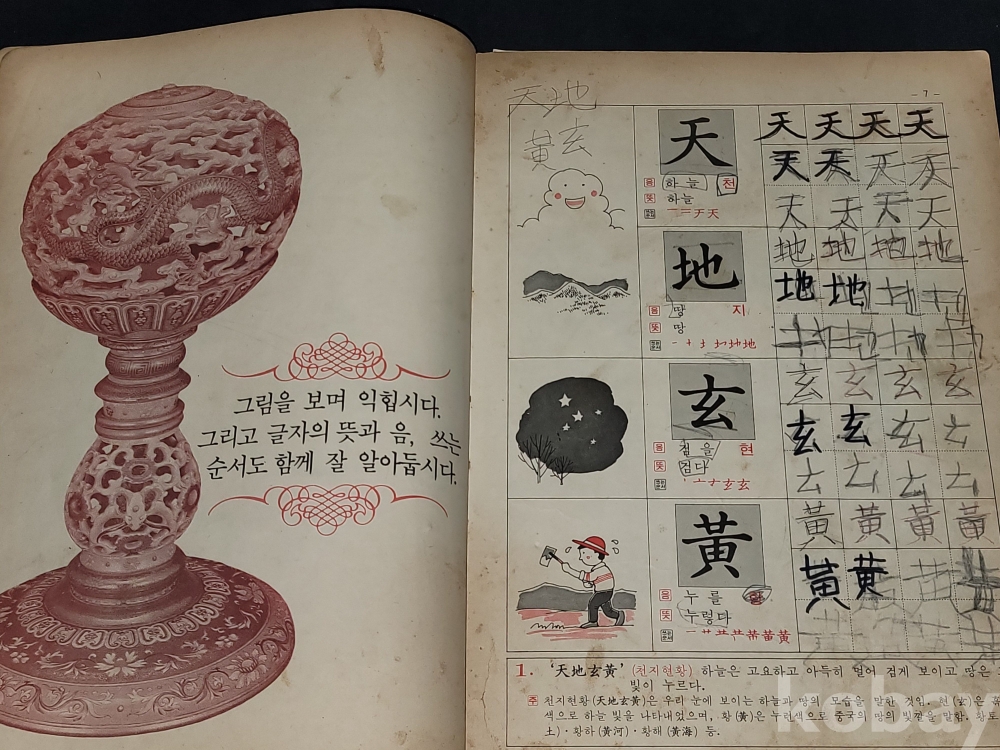 그림을 보며 익힙시다.
그리고 글자의 뜻과 음, 쓰는
순서도 함께 잘 알아둡시다.
- 7 -
天地
黃玄
天
音 하늘 천
뜻 하늘
一 二 チ 天
天 天 天 天
天 天 天 天
天 天 天 天
地
音 땅 지
뜻 땅
地 地 地 地
地 地 地 地
玄
音 검을 현
뜻 검다
玄 玄 玄 玄
玄 玄 玄 玄
黃
音 누를 황
뜻 누렇다
黃 黃 黃 黃
黃 黃
1. ‘天地玄黃’ (천지현황) 하늘은 고요하고 아득히 멀어 검게 보이고 땅은
빛이 누르다.
주 천지현황(天地玄黃)은 우리 눈에 보이는 하늘과 땅의 모습을 말한 것임. 현(玄)은
색으로 하늘 빛을 나타내었으며, 황(黃)은 누런색으로 중국의 땅의 빛깔을 말함. 황토
土)·황하(黃河)·황해(黃海) 등.
kobay